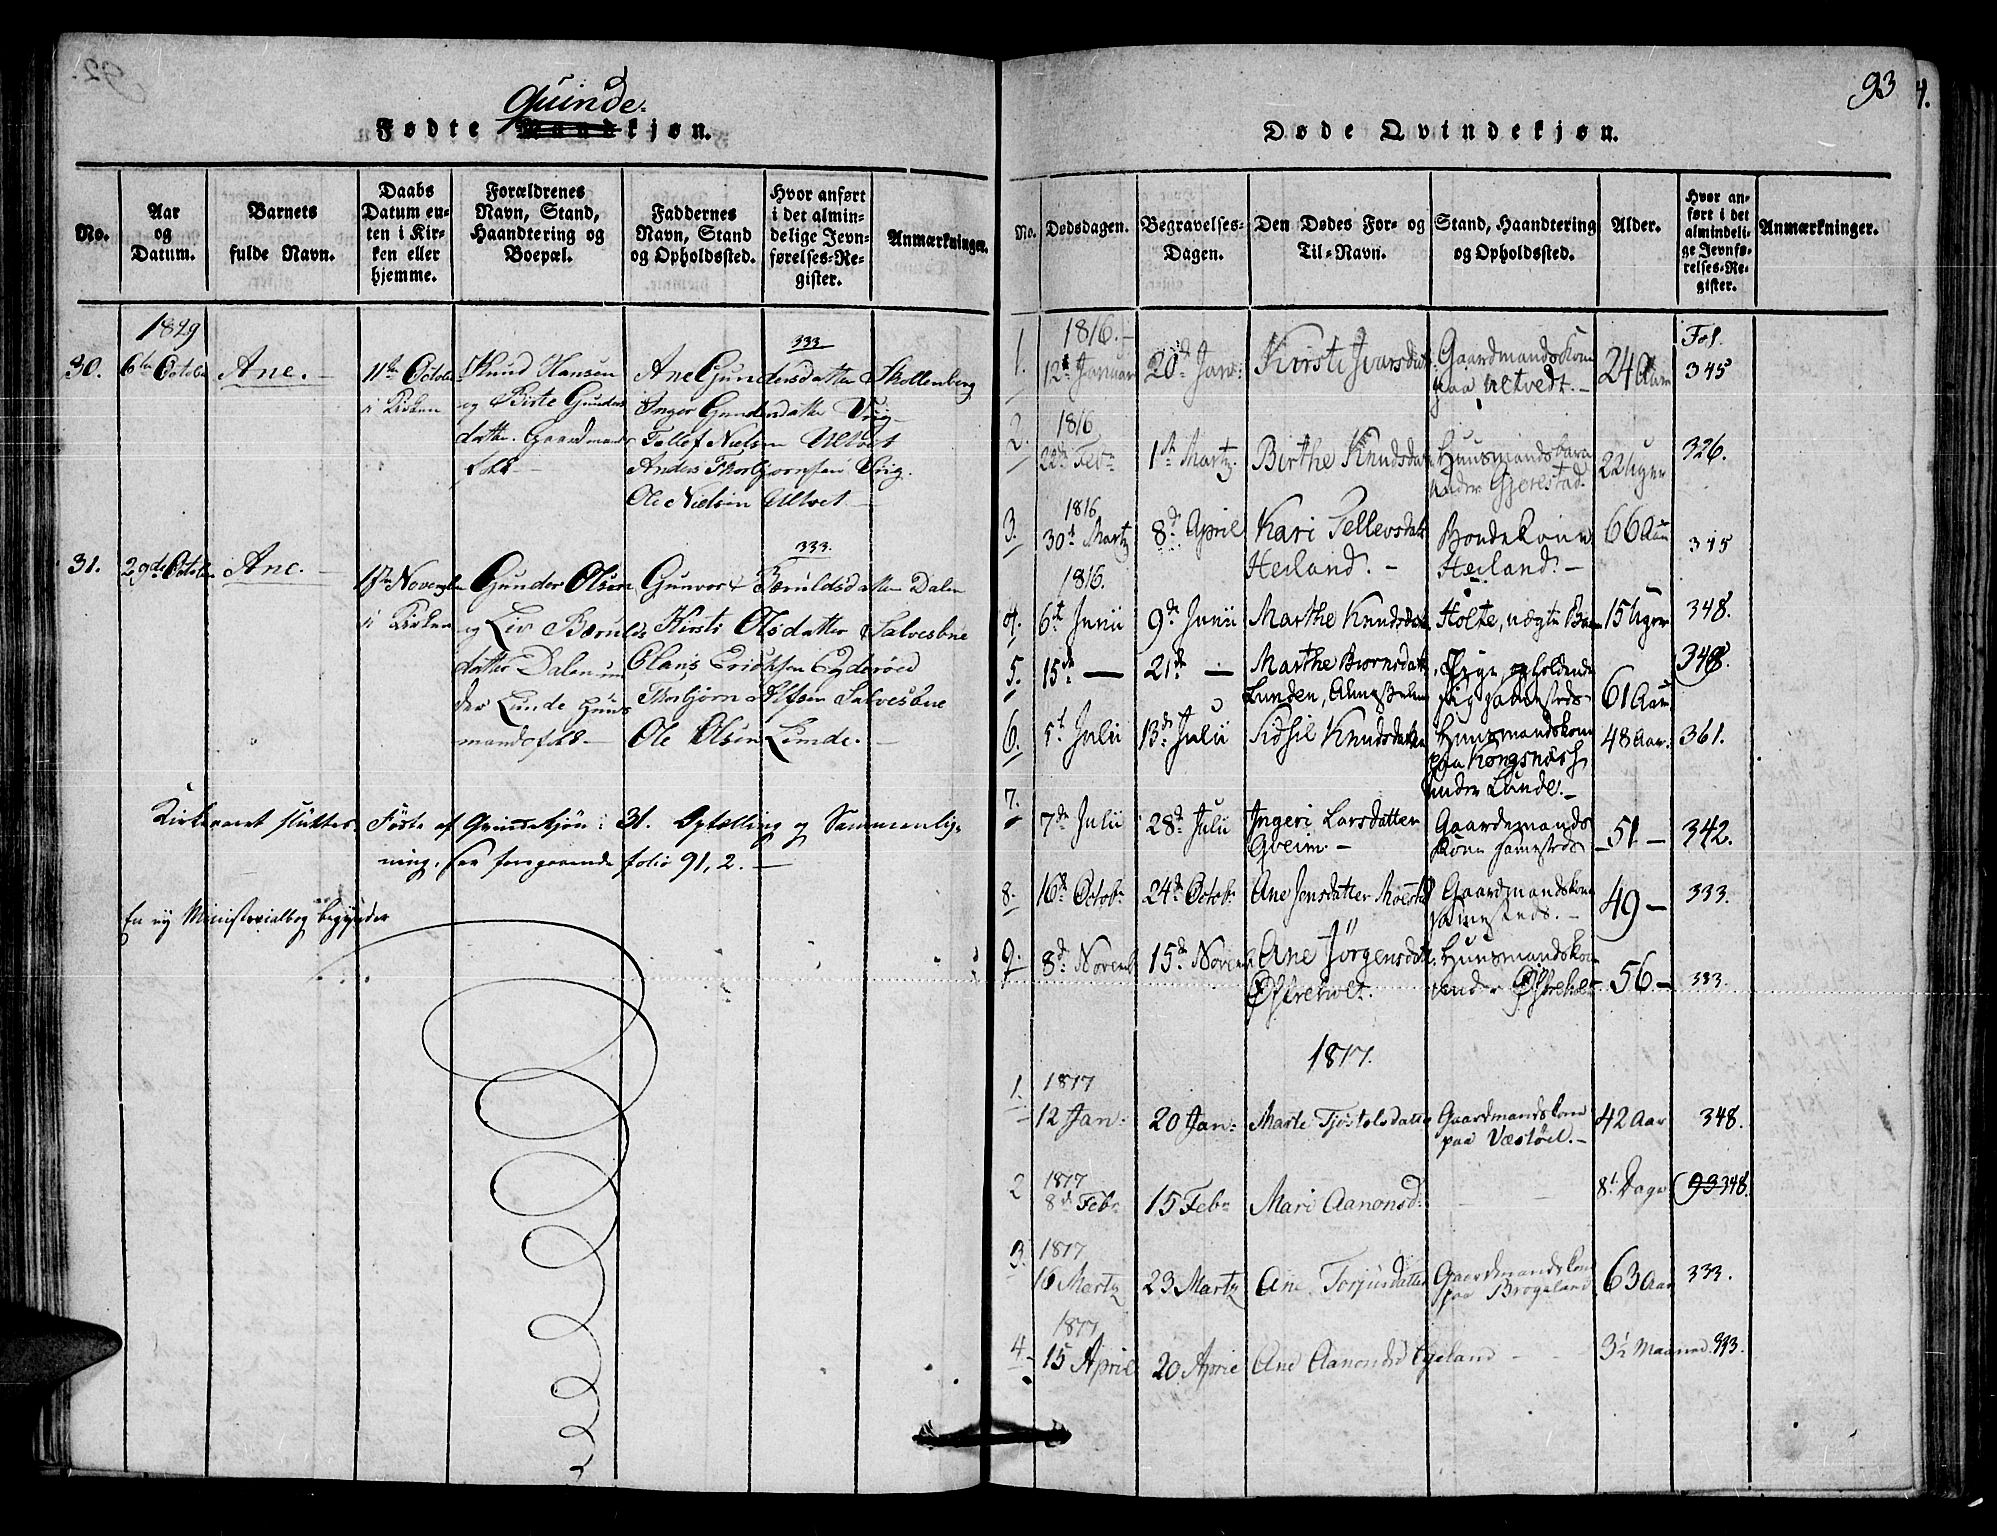 Quinde.
Fødte Mandkjøn.
No.
Aar og Datum.
Barnets fulde Navn.
Daabs Datum enten i Kirken eller hjemme.
Forældrenes Navn, Stand, Haandtering og Boepæl.
Faddernes Navn, Stand og Opholdssted.
Hvor anført i det almindelige Jevnførelses-Register.
Anmærkninger.
1849
30. 6te October Ane. 11te October i Kirken
Knud Hansen
og Birte Gunders
datter. Gaardmands
folk
333
Ane Gundersdatter Skollenberg
Inger Gundersdatter Vrig
Tellef Nielsen Ulltvet
Anders Thorbjørnsen Vrig.
Ole Nielsen Ulltvet.
31. 29de October Ane. November i Kirken
Gunder Olsen
og Liv Bærulds
datter Dalen un
der Lunde Huus
mandsfolk
333.
Gunvor Bæruldsdatter Dalen
Kirsti Olsdatter Salvesbue
Clans Erichsen Egderøed
Thorbjørn Alfsen Salvesbue
Ole Olsen Lunde.
Kirkeaaret sluttes. Fødte af Qvindekjøn: 31. Optælling og Sammenlig-
ning, see foregaaende folio 91, 2.
En ny Ministerialbog begynder
93
Døde Qvindekjøn.
No.
Dødsdagen.
Begravelses-Dagen.
Den Dødes For- og Til-Navn.
Stand, Haandtering og Opholdssted.
Alder.
Hvor anført i det almindelige Jevnførelses-Register.
Anmærkninger.
1816. Fol.
1. 12t Januar 20d Jan: Kirsti Ivarsdatt. Gaardmands Kone paa Ulltvedt. 24 Aar 345
1816
2. 22d Febr 1st Martz. Birthe Knudsdatt Huusmandsbarn under Gjerestad. 22 Uger 326.
1816
3. 30t Martz 8d April Kari Tellevsdatt Heiland. Bondekone Heiland. 66 Aar 345
1816.
4. 6t Junii 9de Junii Marthe Knudsdatt Holte, uægte Barn 15 Uger 348.
5. 15de 21de Marthe Biørnsdatt Lunden, opholdende sig sammesteds 61 Aar 348.
6. 5t Julii 13de Julii Sidsil Knudsdatter Huusmandskone paa Kongsnæss under Lunde. 48 Aar. 361.
7. 7de Julii 28d Julii Ingeri Larsdatter Gheim. Gaardmands Kone samesteds 51 342.
8. 16d Octobr 24d Octobr Ane Jensdatter Gaardmandskone samesteds. 49 333.
9. 8d Novemb 15d Novem Ane Jörgensdatt. Østreholt. Huusmandskone under Østreholt 56 333.
1817.
1817
1. 12 Jan: 20 Jan: Marte Tjöstolsdatter Gaardmandskone paa Væstöel. 42 Aar 348.
1817
2 8d Febr 15 Febr Mari Aanonsd: 8t Dage 93 348.
1817
3. 16 Martz 23 Martz Ane Torjusdatter Gaardmandskone paa Brogeland 63 Aar 333.
1817
4. 15 April 20 April Ane Aanonsd Egeland 3½ Maaned 333.